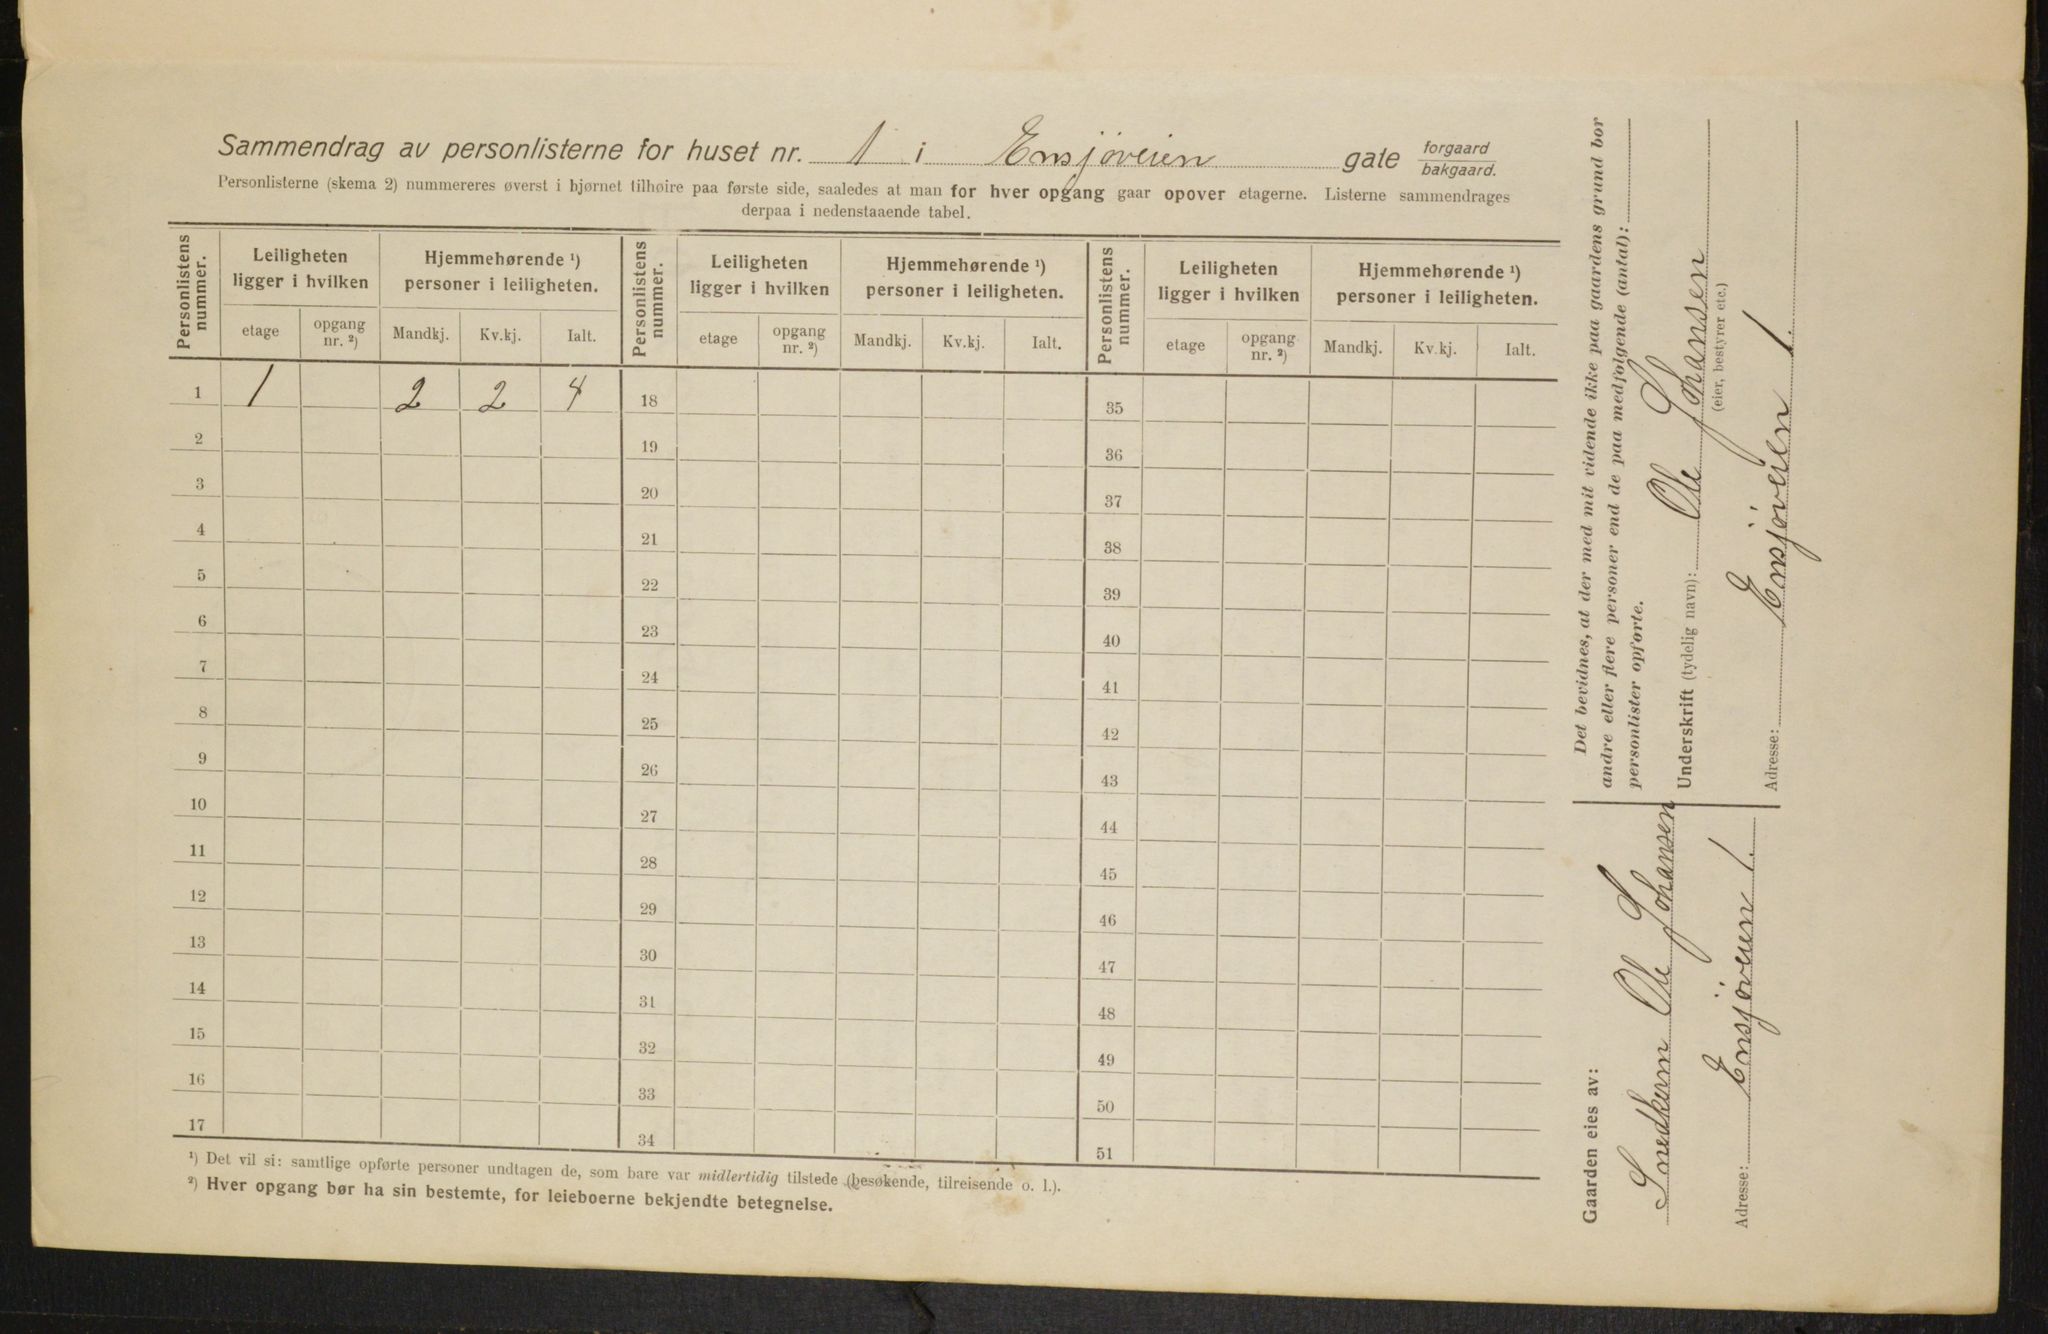 Sammendrag av personlisterne for huset nr. 1 i Ensjøveien gate forgaard bakgaard.
Personlisterne (skema 2) nummereres øverst i hjørnet tilhøire paa første side, saaledes at man for hver opgang gaar opover etagerne. Listerne sammendrages
derpaa i nedenstaaende tabel.
Personlistens nummer. Leiligheten ligger i hvilken Hjemmehørende ¹) personer i leiligheten. Personlistens nummer. Leiligheten ligger i hvilken Hjemmehørende ¹) personer i leiligheten. Personlistens nummer. Leiligheten ligger i hvilken Hjemmehørende ¹) personer i leiligheten.
etage opgang nr. ²) Mandkj. Kv.kj. Ialt. etage opgang nr. ²) Mandkj. Kv.kj. Ialt. etage opgang nr. ²) Mandkj. Kv.kj. Ialt.
1 1 2 2 4 18 35
2 19 36
3 20 37
4 21 38
5 22 39
6 23 40
7 24 41
8 25 42
9 26 43
10 27 44
11 28 45
12 29 46
13 30 47
14 31 48
15 32 49
16 33 50
17 34 51
¹) Det vil si: samtlige opførte personer undtagen de, som bare var midlertidig tilstede (besøkende, tilreisende o. l.).
²) Hver opgang bør ha sin bestemte, for leieboerne bekjendte betegnelse.
Det bevidnes, at der med mit vidende ikke paa gaardens grund bor
andre eller flere personer end de paa medfølgende (antal):
personlister opførte.
Underskrift (tydelig navn): Ole Johansen
(eier, bestyrer etc.)
Adresse: Ensjøveien 1.
Gaarden eies av:
Snedkern Ole Johansen
Adresse: Ensjøveien 1.